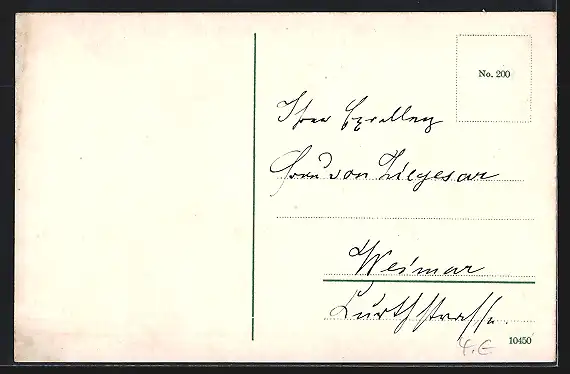 No. 200
Ihrer Exzellenz
Frau von Ziegesar
Weimar
Lurthstrasse
10450
4.E